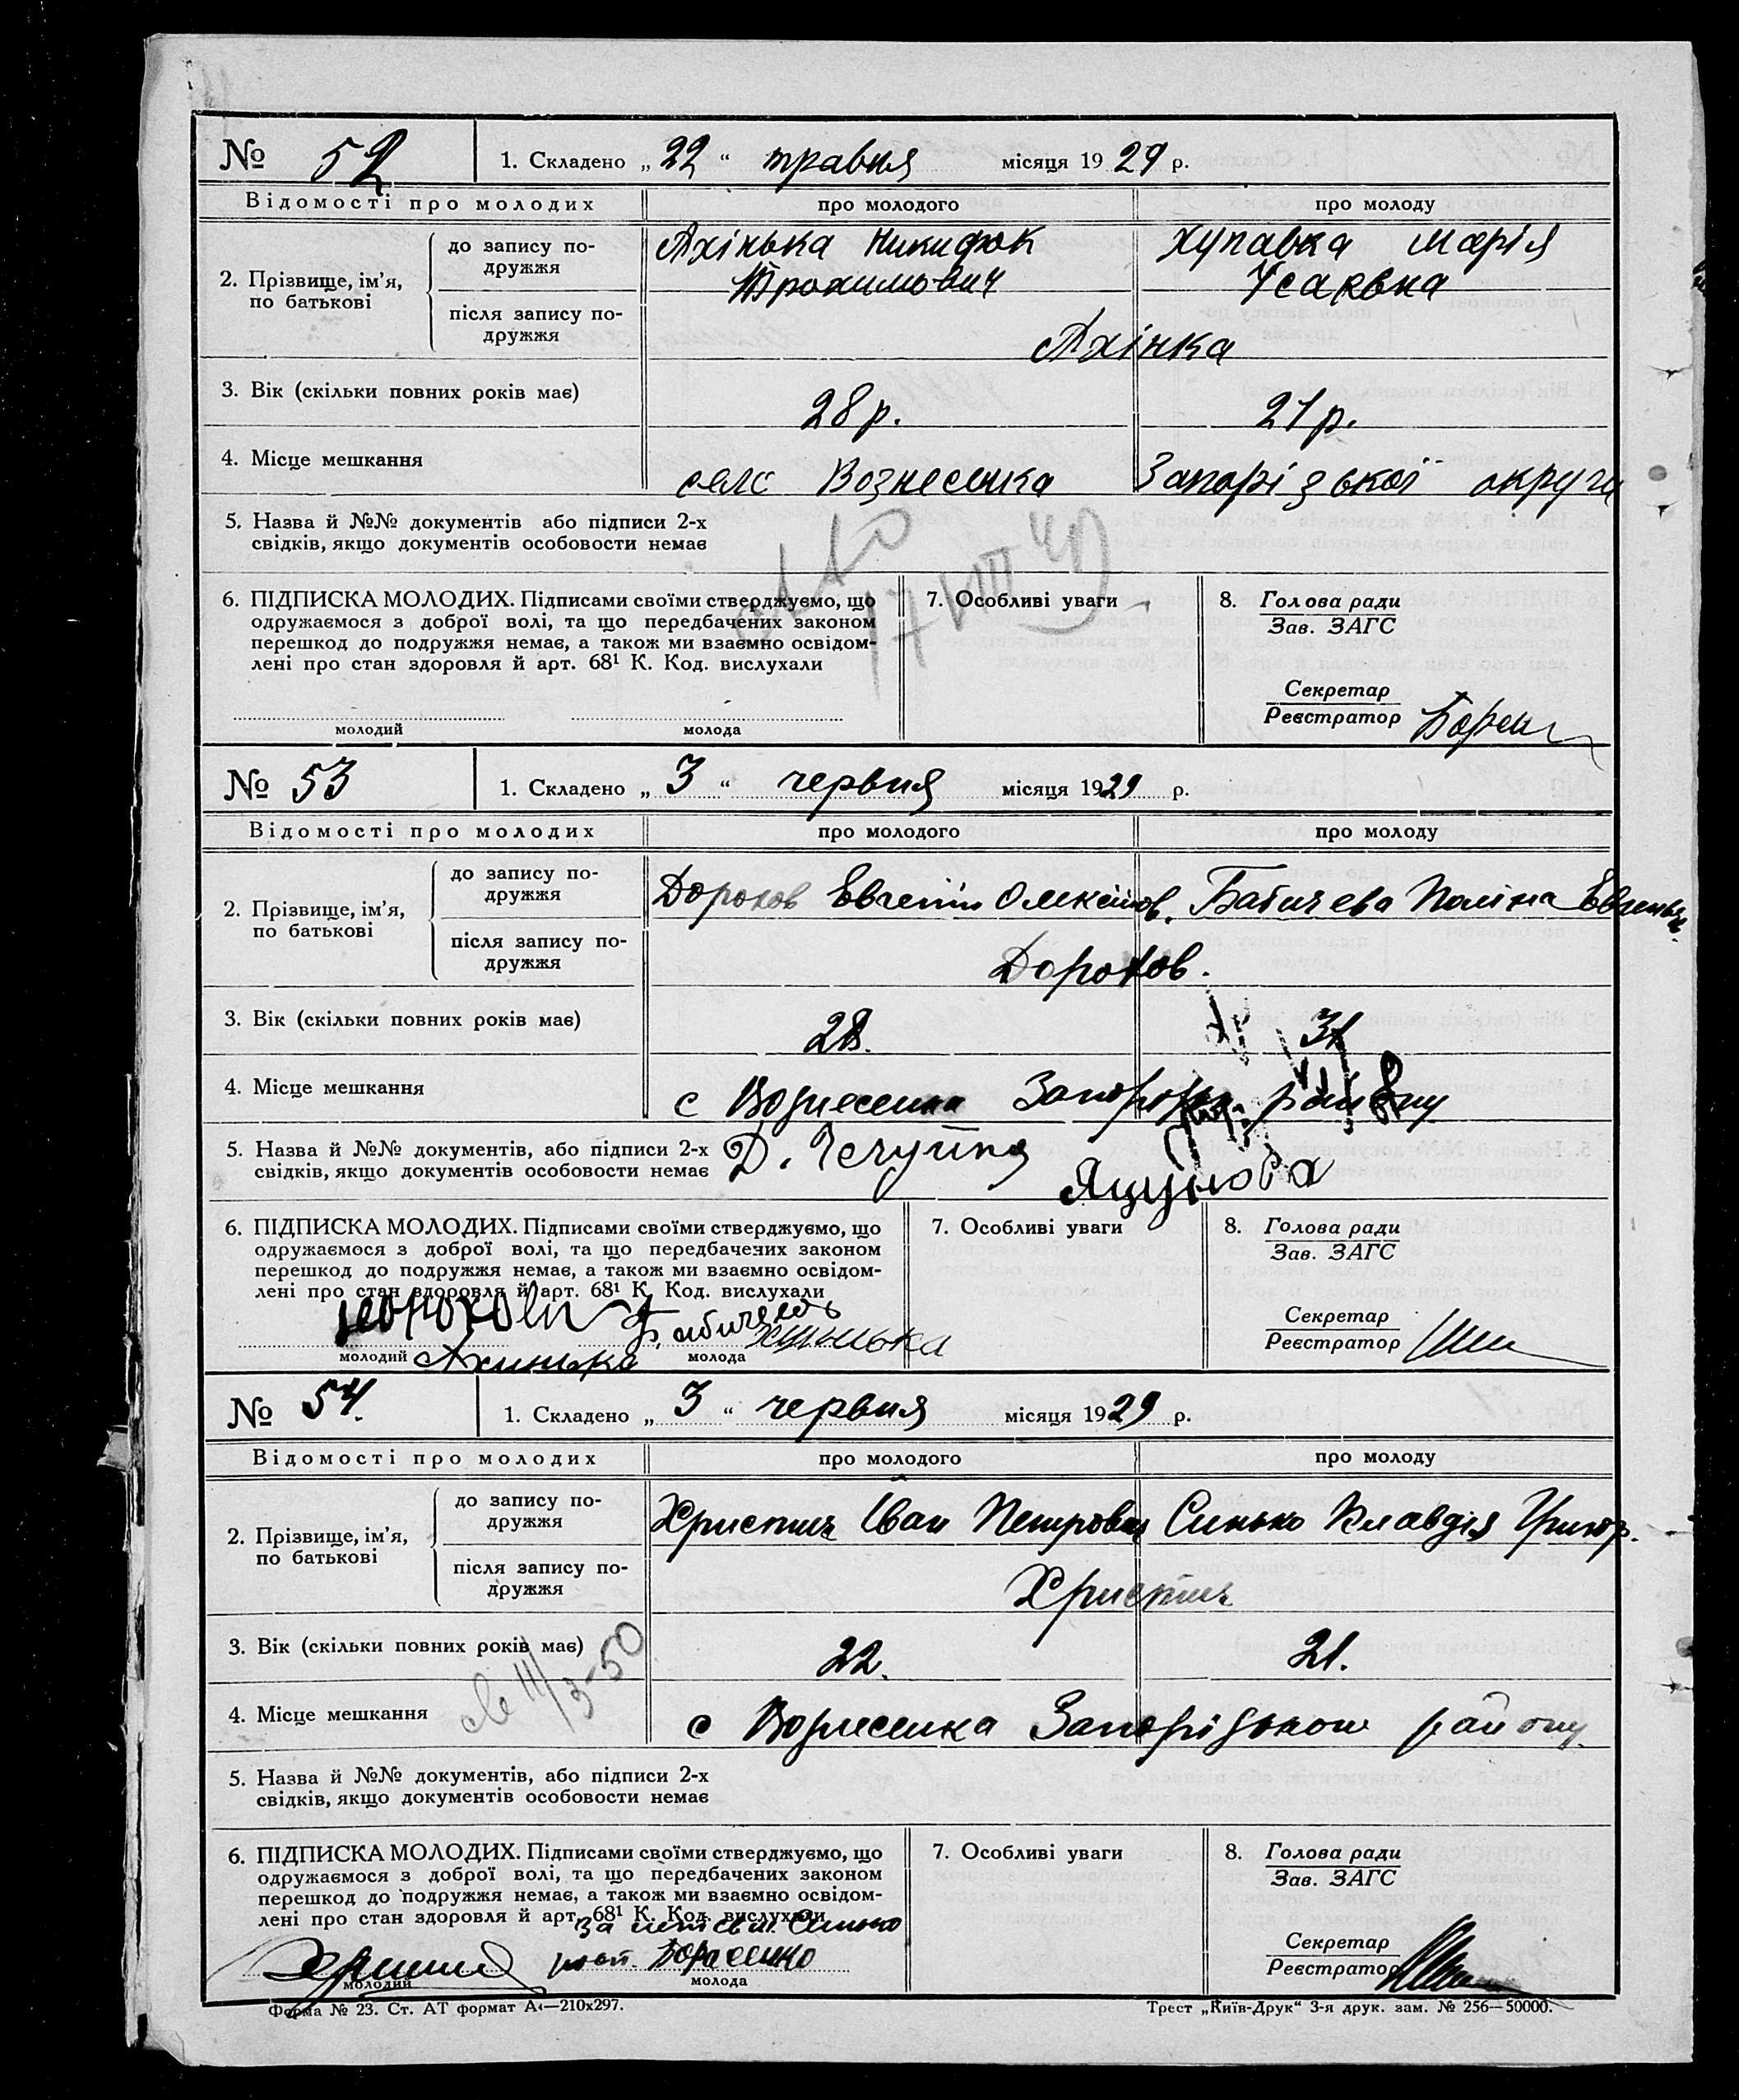 № 52 1. Складено „ 22 “ травня місяця 1929 р.
Відомості про молодих про молодого про молоду
2. Прізвище, ім’я, по батькові
до запису подружжя
Ахінька Никифок Трохимович
Хупавка Марія Усаєвна
після запису подружжя
Ахінка
3. Вік (скільки повних років має) 28 р. 21 р.
4. Місце мешкання село Вознесенка Запорізької округи
5. Назва й №№ документів або підписи 2-х
свідків, якщо документів особовости немає
6. ПІДПИСКА МОЛОДИХ. Підписами своїми стверджуємо, що
одружаємося з доброї волі, та що передбачених законом
перешкод до подружжя немає, а також ми взаємно освідом-
лені про стан здоровля й арт. 68¹ К. Код. вислухали
молодий молода
7. Особливі уваги
8. Голова ради
Зав. ЗАГС
Секретар
Реєстратор
№ 53 1. Складено „ 3 “ червня місяця 1929 р.
Відомості про молодих про молодого про молоду
2. Прізвище, ім’я, по батькові
до запису подружжя
Дорохов Евгеній Олексійов.
Бабичева Поліна
після запису подружжя
Дорохов.
3. Вік (скільки повних років має) 28. 31
4. Місце мешкання с Вознесенка району
5. Назва й №№ документів, або підписи 2-х
свідків, якщо документів особовости немає
Яцунова
6. ПІДПИСКА МОЛОДИХ. Підписами своїми стверджуємо, що
одружаємося з доброї волі, та що передбачених законом
перешкод до подружжя немає, а також ми взаємно освідом-
лені про стан здоровля й арт. 68¹ К. Код. вислухали
молодий Ахинька молода
7. Особливі уваги
8. Голова ради
Зав. ЗАГС
Секретар
Реєстратор
№ 54. 1. Складено „ 3 “ червня місяця 1929 р.
Відомості про молодих про молодого про молоду
2. Прізвище, ім’я, по батькові
до запису подружжя
Христич Іван Петрович
Синько Клавдія Григор.
після запису подружжя
Христич
3. Вік (скільки повних років має) 22. 21.
11/3-50
4. Місце мешкання с Вознесенка Запорізького району.
5. Назва й №№ документів, або підписи 2-х
свідків, якщо документів особовости немає
6. ПІДПИСКА МОЛОДИХ. Підписами своїми стверджуємо, що
одружаємося з доброї волі, та що передбачених законом
перешкод до подружжя немає, а також ми взаємно освідом-
лені про стан здоровля й арт. 68¹ К. Код. вислухали
молодий молода
7. Особливі уваги
8. Голова ради
Зав. ЗАГС
Секретар
Реєстратор
Форма № 23. Ст. АТ формат А4—210х297.
Трест „Київ-Друк“ 3-я друк. зам. № 256—50000.